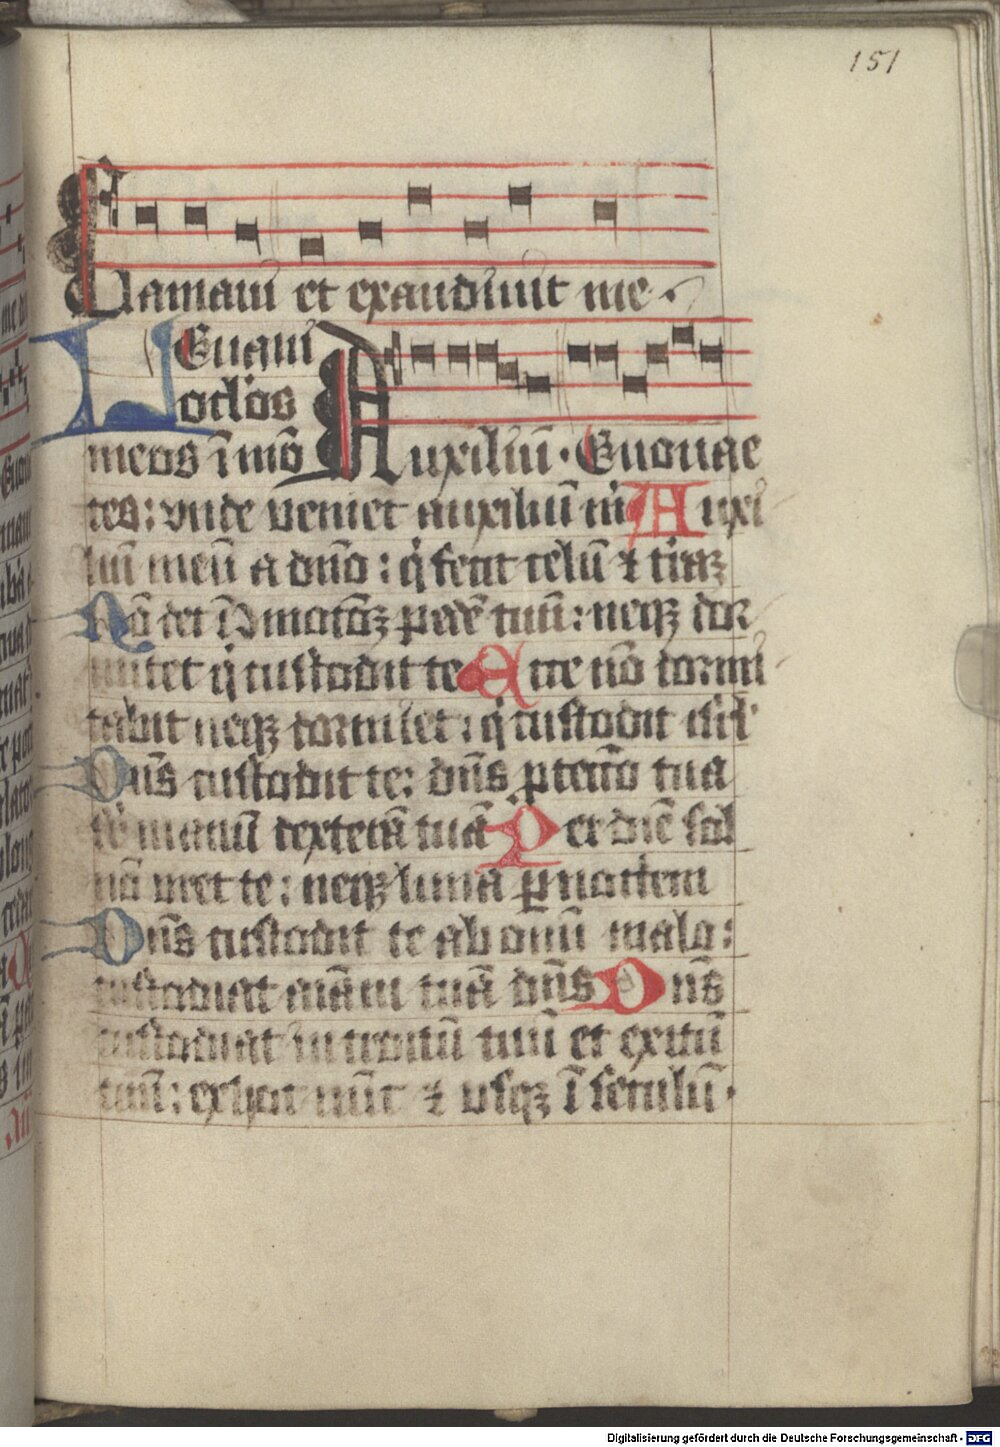 151
Clamaui et exaudiuit me.
Leuaui
oclos
meos ī mō Auxiliū. Euouae
tes: vnde veniet auxiliū m̄ Auxi
liū meū a dn̄o: q̇ fecit celū ⁊ t̄rā
Nō det ī ꝯmotōꝫ pedē tuū: neqꝫ dor
mitet q̇ custodit te Ecce nō dormi
tabit neqꝫ dormiet: q̇ custodit isrl̄
Dn̄s custodit te: dn̄s ꝓtectō tua
sup̄ manū dexterā tuā Per diē sol
nō vret te: neqꝫ luna ꝑ noctem
Dn̄s custodit te ab omni malo:
custodiat aīam tuā dn̄s Dn̄s
custodiat introitū tuū et exitū
tuū: ex hoc nūc ⁊ vsqꝫ ī seculū.
Digitalisierung gefördert durch die Deutsche Forschungsgemeinschaft - DFG